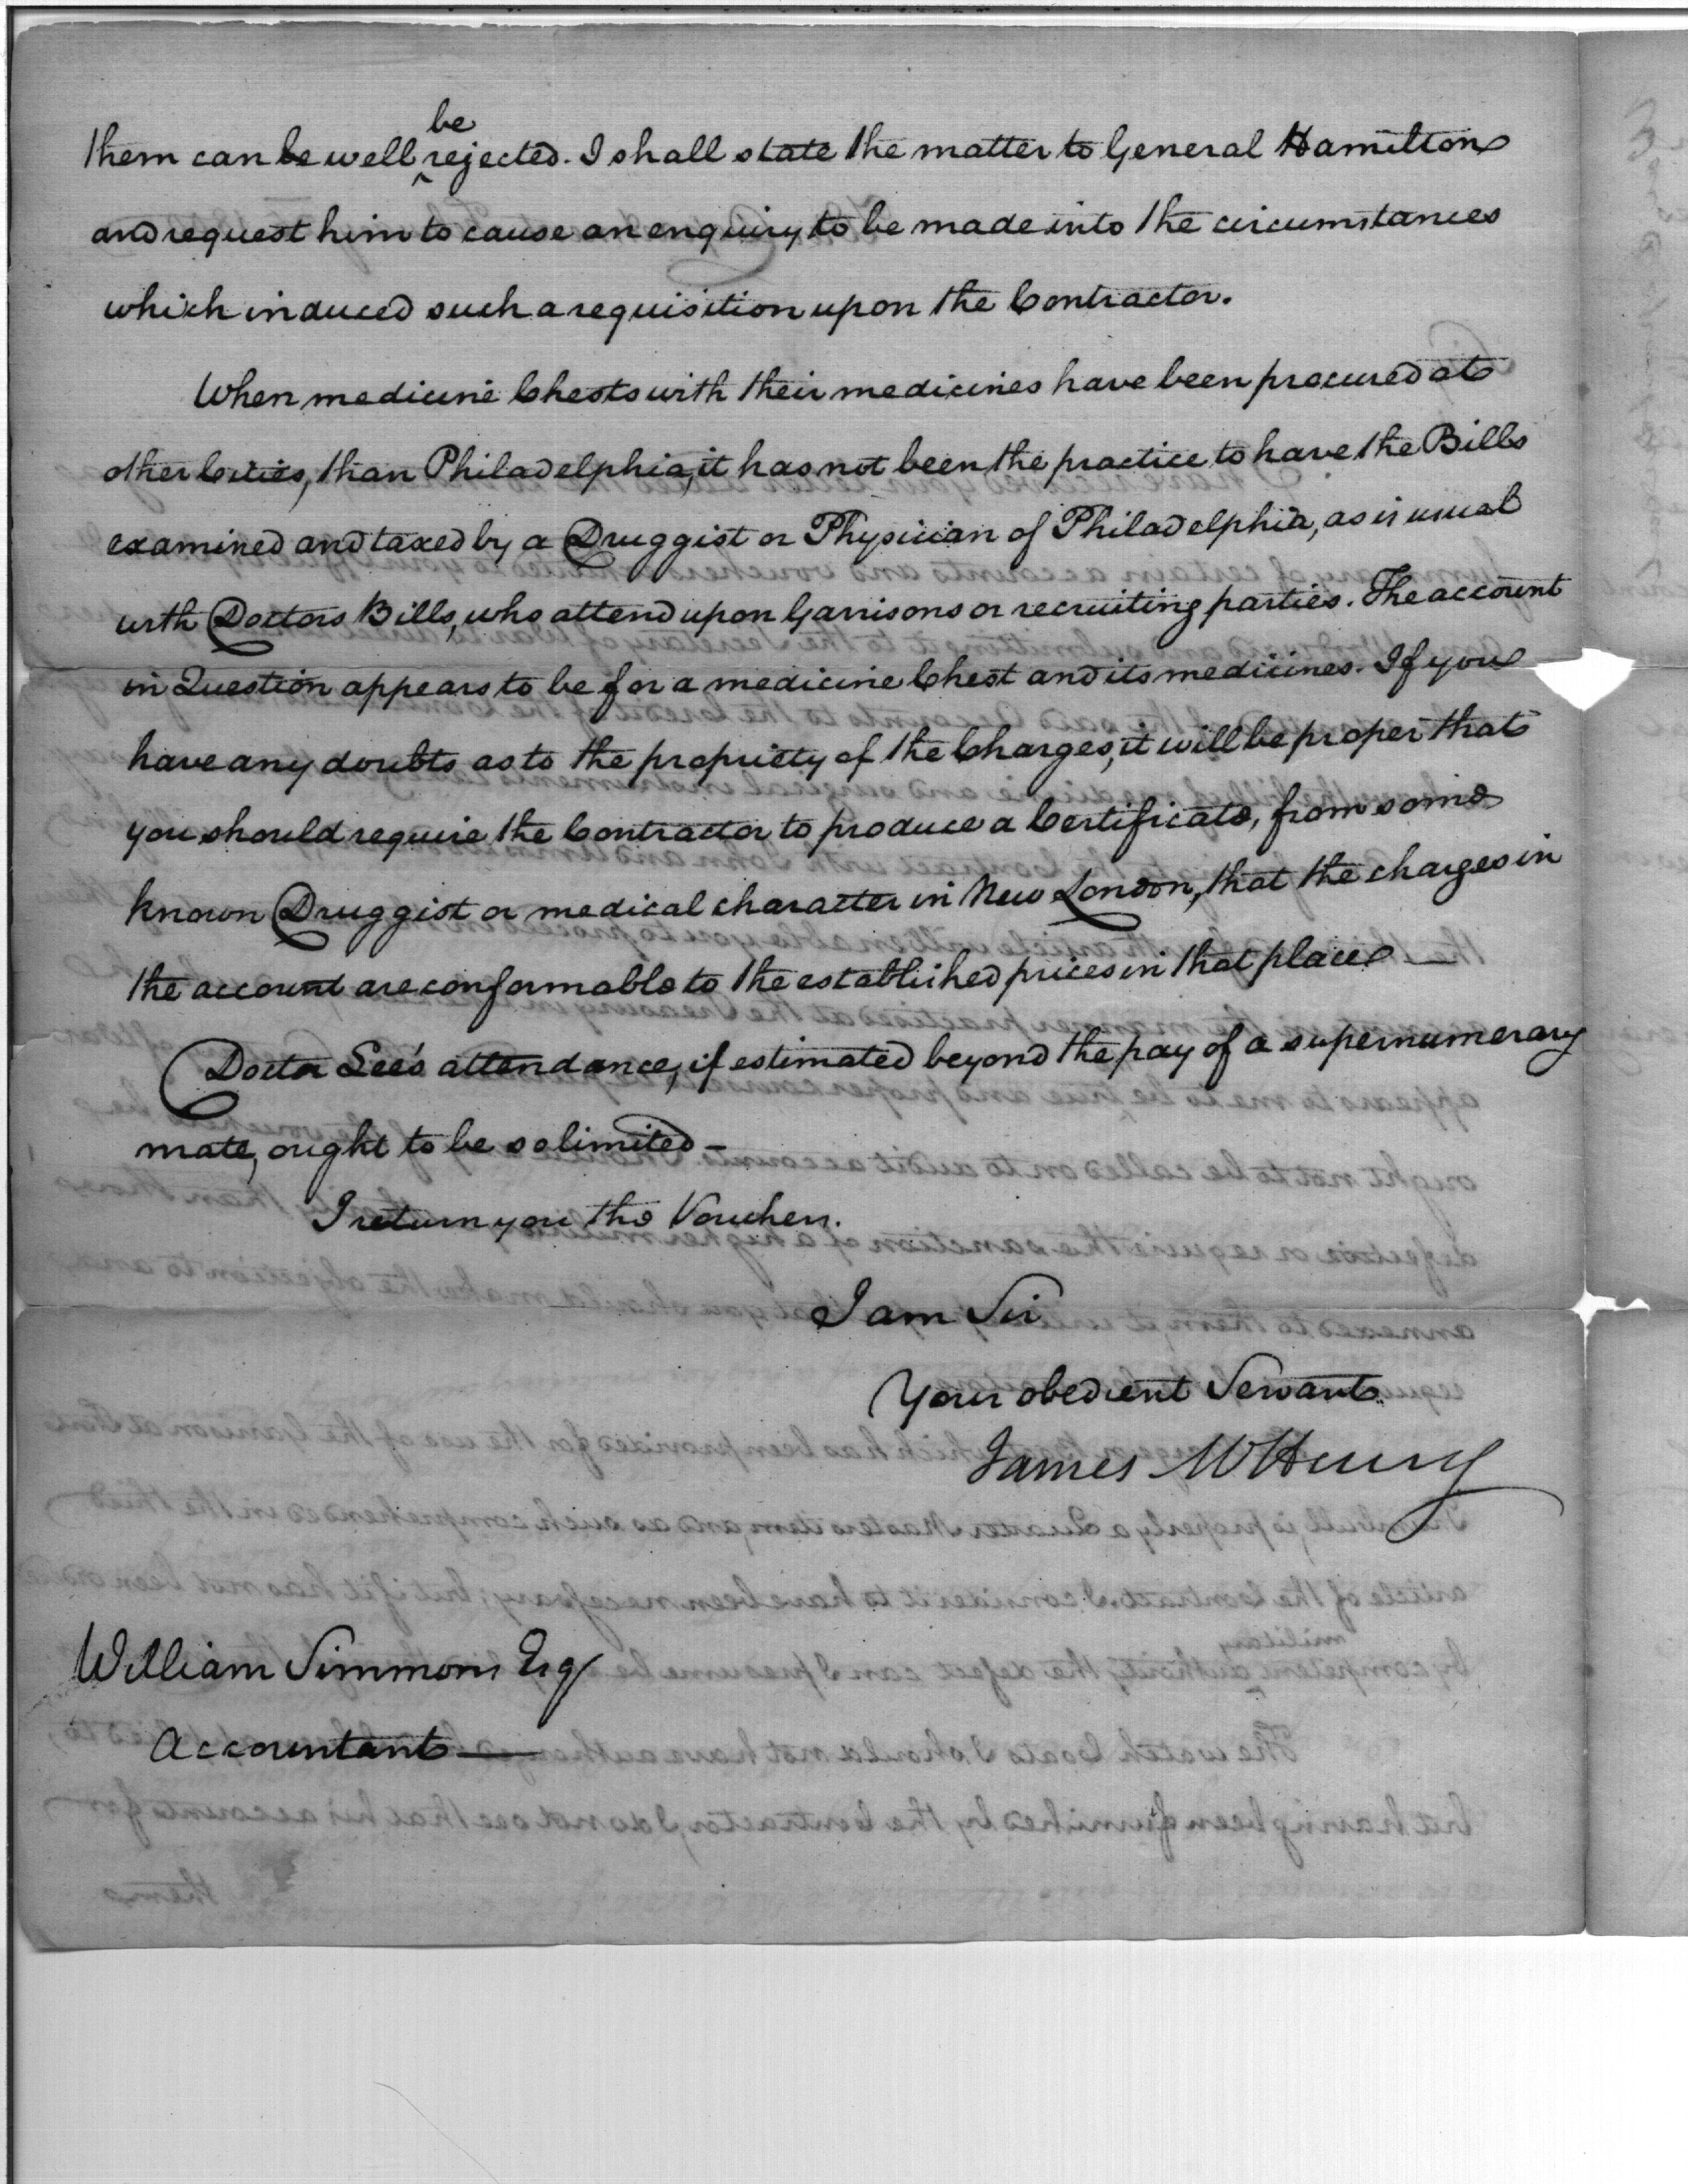 be
them can be well rejected. I shall state the matter to General Hamilton
and request him to cause an enquiry to be made into the circumstances
which induced such a requisition upon the Contractor.
When medicine Chests with their medicines have been procured at
other Cities, than Philadelphia, it has not been the practice to have the Bills
examined and taxed by a Druggist or Physician of Philadelphia, as is usual
with Doctors Bills, who attend upon Garrisons or recruiting parties. The account
in Question appears to be for a medicine Chest and its medicines. If you
have any doubts as to the propriety of the Charges, it will be proper that
you should require the Contractor to produce a Certificate, from some
known Druggist or medical character in New London, that the charges in
the account are conformable to the established prices in that place —
Doctor Lee's attendance, if estimated beyond the pay of a supernumerary
mate, ought to be so limited –
I return you the Vouchers.
I am Sir
Your obedient Servant
James McHenry
William Simmons Esq
Accountant —